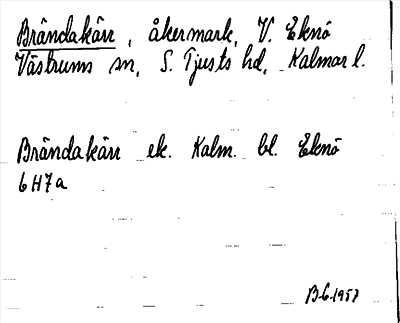 Brändakärr, åkermark, V. Eknö
Västrums sn, S. Tjusts hd, Kalmar l.
Brändakärr ek. Kalm. bl. Eknö
6H7a
B.G. 1957